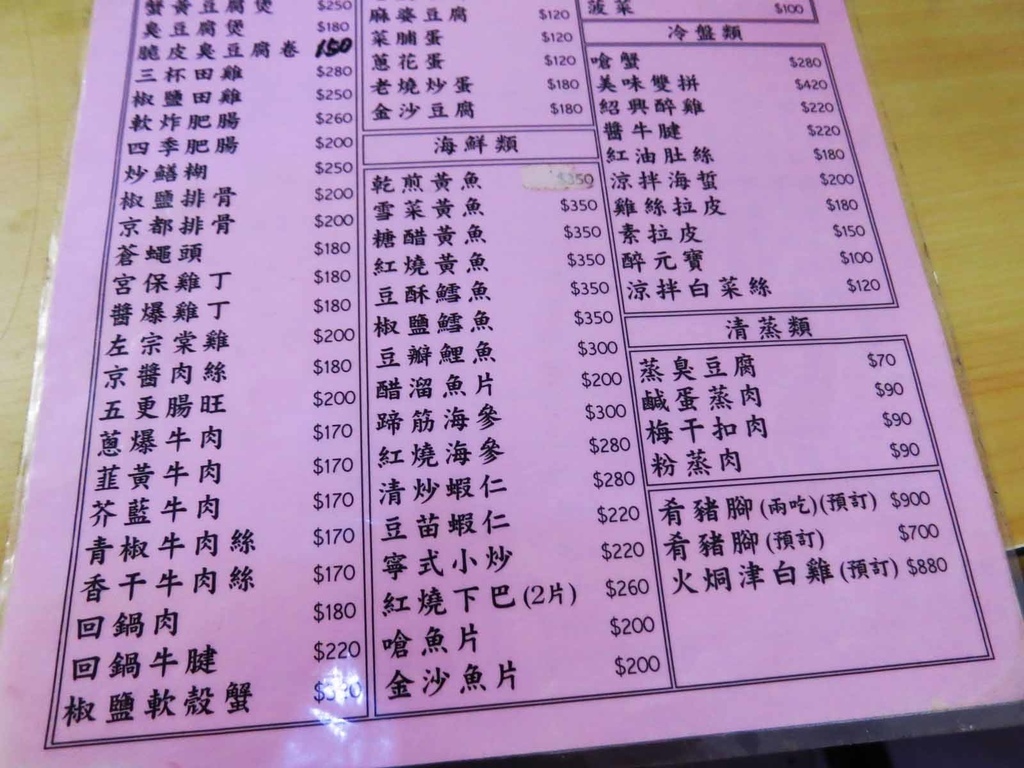 蟹黃豆腐煲 $250
臭豆腐煲 $180
脆皮臭豆腐卷 150
三杯田雞 $280
椒鹽田雞 $250
軟炸肥腸 $260
四季肥腸 $200
炒鱔糊 $250
椒鹽排骨 $200
京都排骨 $200
蒼蠅頭 $180
宮保雞丁 $180
醬爆雞丁 $180
左宗棠雞 $200
京醬肉絲 $180
五更腸旺 $200
蔥爆牛肉 $170
韭黃牛肉 $170
芥藍牛肉 $170
青椒牛肉絲 $170
香干牛肉絲 $170
回鍋肉 $180
回鍋牛腱 $220
椒鹽軟殼蟹
麻婆豆腐 $120
菜脯蛋 $120
蔥花蛋 $120
老燒炒蛋 $180
金沙豆腐 $180
海鮮類
乾煎黃魚 $350
雪菜黃魚 $350
糖醋黃魚 $350
紅燒黃魚 $350
豆酥鱈魚 $350
椒鹽鱈魚 $350
豆瓣鯉魚 $300
醋溜魚片 $200
蹄筋海參 $300
紅燒海參 $280
清炒蝦仁 $280
豆苗蝦仁 $220
寧式小炒 $220
紅燒下巴(2片) $260
嗆魚片 $200
金沙魚片 $200
菠菜 $100
冷盤類
嗆蟹 $280
美味雙拼 $420
紹興醉雞 $220
醬牛腱 $220
紅油肚絲 $180
涼拌海蜇 $200
雞絲拉皮 $180
素拉皮 $150
醉元寶 $100
涼拌白菜絲 $120
清蒸類
蒸臭豆腐 $70
鹹蛋蒸肉 $90
梅干扣肉 $90
粉蒸肉 $90
肴豬腳(兩吃)(預訂) $900
肴豬腳(預訂) $700
火炯津白雞(預訂) $880